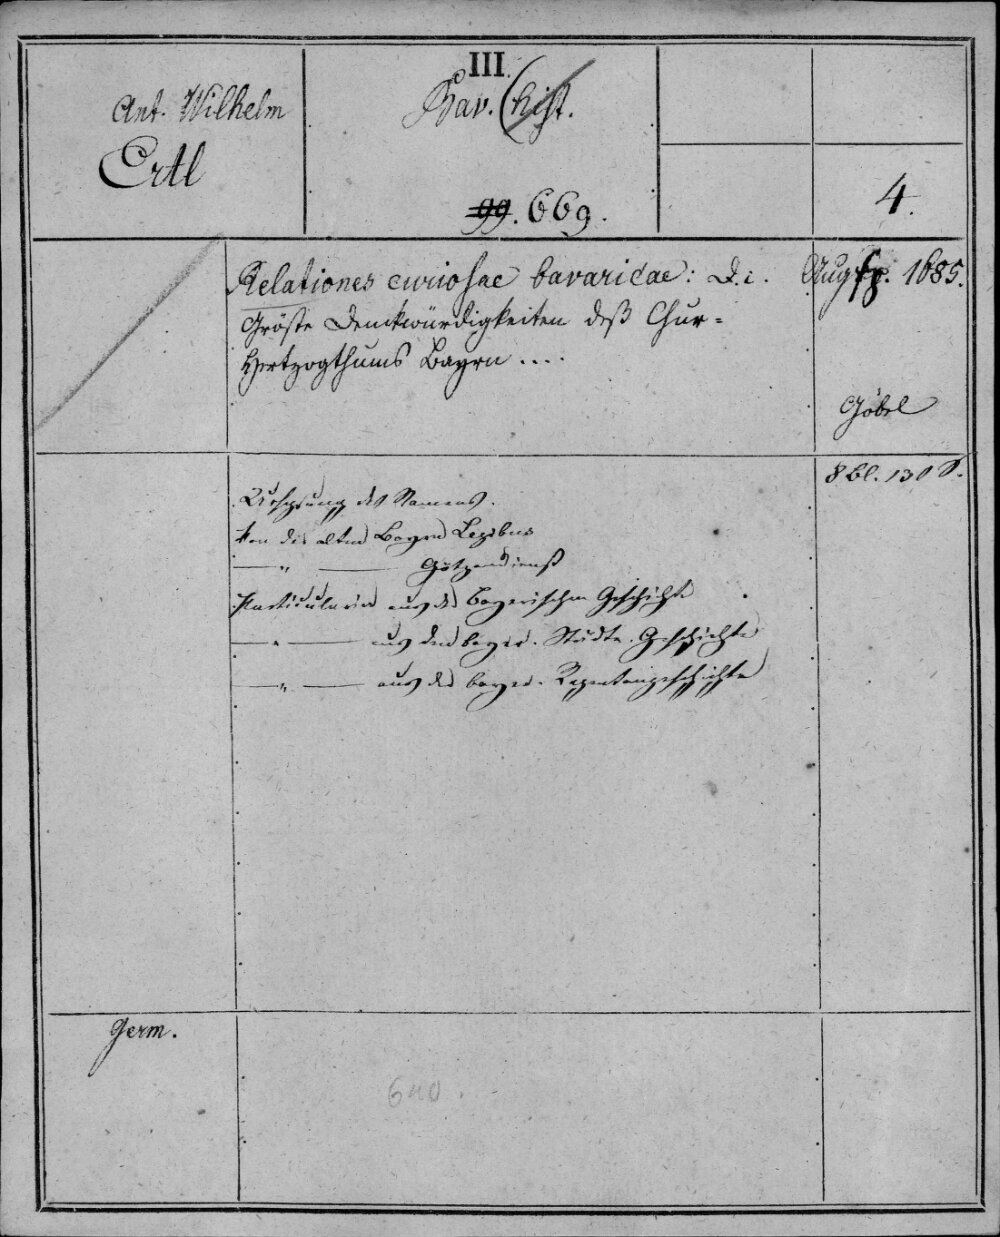 III.
Ant. Wilhelm
Ertl
Bav. (hist.
99. 669.
4.
Relationes curiosae bavaricae: D. i.
Gröste Denckwürdigkeiten deß Chur-
Hertzogthums Bayrn ....
Aug. 1685.
Göbel
8 bl. 130 S.
Ursprung des Namens.
Von der alten Bayrn
— " — Götzendienst
Particularien aus der Bayerischen Geschichte
— " — aus der bayer. Städte Geschichte
— " — aus der bayer. Regentengeschichte
Germ.
640